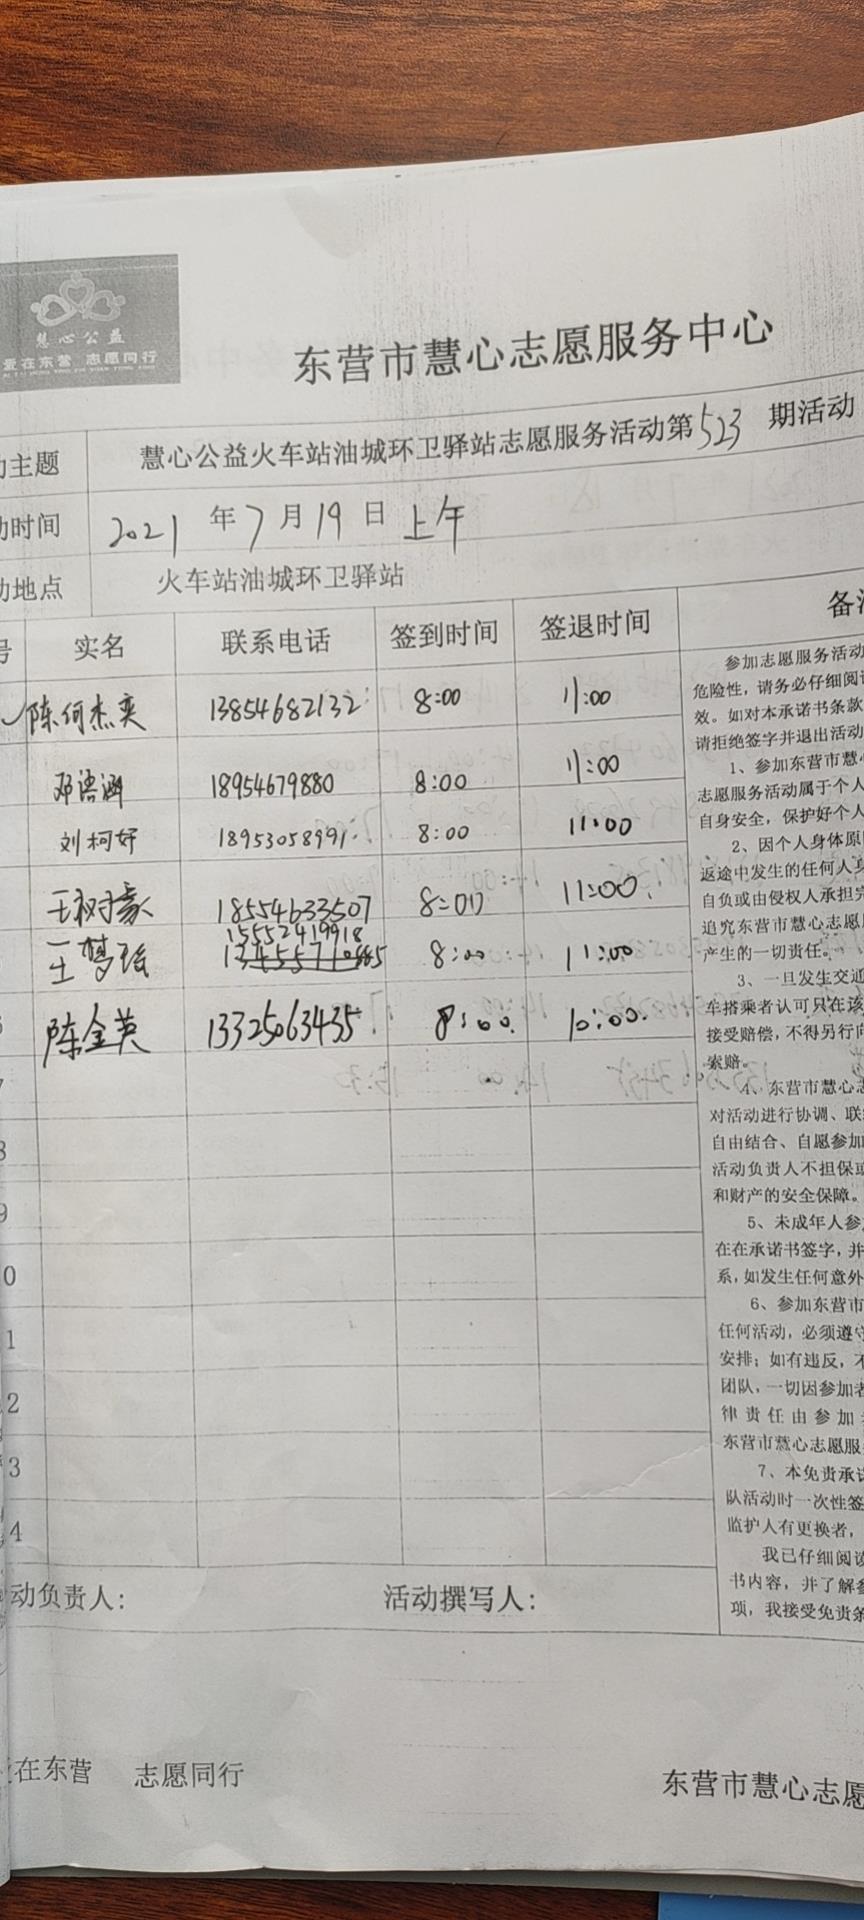 慧心公益
爱在东营 志愿同行
东营市慧心志愿服务中心
动主题 慧心公益火车站油城环卫驿站志愿服务活动第523期活动
动时间 2021年7月19日上午
动地点 火车站油城环卫驿站
号 实名 联系电话 签到时间 签退时间 备注
陈何杰奕 13854682132 8:00 11:00
邓语涵 18954679880 8:00 11:00
刘柯妤 18953058991 8:00 11:00
王树豪 18554633507 8:00 11:00
15552419918
王梦瑶 8:00 11:00
陈金英 13325063435 8:00 10:00
7
8
9
0
1
2
3
4
参加志愿服务活动
危险性，请务必仔细阅读
效。如对本承诺书条款
请拒绝签字并退出活动
1、参加东营市慧心
志愿服务活动属于个人
自身安全，保护好个人
2、因个人身体原因
返途中发生的任何人身
自负或由侵权人承担完
追究东营市慧心志愿服
产生的一切责任。
3、一旦发生交通
车搭乘者认可只在该
接受赔偿，不得另行向
索赔。
4、东营市慧心志
对活动进行协调、联络
自由结合、自愿参加
活动负责人不担保或
和财产的安全保障。
5、未成年人参加
在在承诺书签字，并
系，如发生任何意外
6、参加东营市
任何活动，必须遵守
安排；如有违反，不
团队，一切因参加者
律责任由参加
东营市慧心志愿服
7、本免责承诺
队活动时一次性签
监护人有更换者，
我已仔细阅读
书内容，并了解参
项，我接受免责条
动负责人： 活动撰写人：
爱在东营 志愿同行 东营市慧心志愿